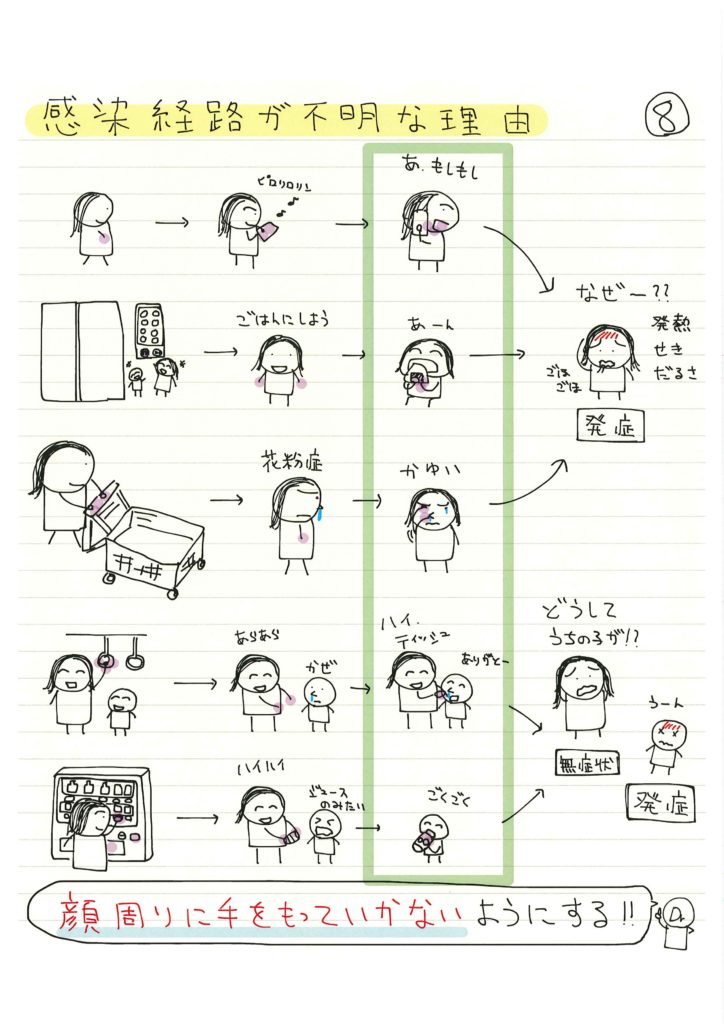 感染経路が不明な理由
⑧
ピロリロリン
あ、もしもし
なぜー??
発熱
せき
だるさ
ごほ
ごほ
発症
ごはんにしよう
あーん
花粉症
かゆい
あらあら
かぜ
ハイ、
ティッシュ
ありがとー
どうして
うちの子が!?
無症状
うーん
発症
ハイハイ
ジュース
のみたい
ごくごく
顔周りに手をもっていかないようにする!!
Dr